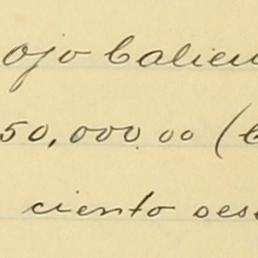 ojo Calien
50,000.00 (
ciento sese